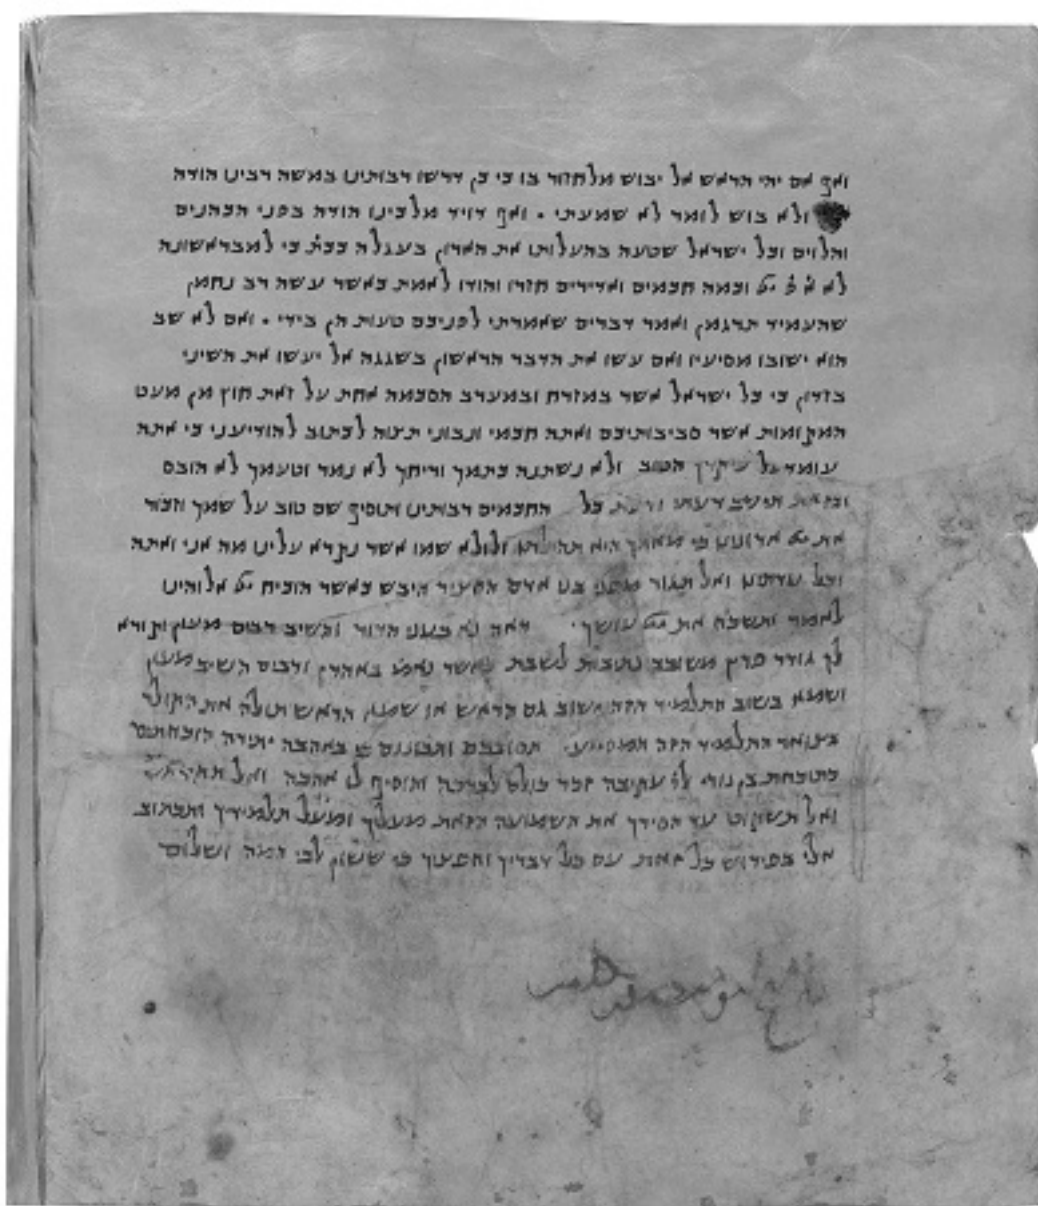 ואף אם יהי הראש אל יבוש מלחזור בו כי כן דרשו רבותינו במשה רבינו הודה
ולא בוש לומר לא שמעתי . ואף דויד מלכינו הודה בפני הכהנים
והלוים וכל ישראל שטעה בהעלותו את הארון בעגלה ככת כי למבראשונה
לא וכמה חכמים ואדירים חזרו והודו לאמת כאשר עשה רב נחמן
שהעמיד תרגמן ואמר דברים שאמרתי לפניכם טעות הן בידי . ואם לא שב
הוא ישובו מסיעיו ואם עשו את הדבר הראשון בשגגה אל יעשו את השיני
בזדון כי כל ישראל אשר במזרח ובמערב הסכמה אחת על זאת חוץ מן מעט
המקומות אשר סביבותיכם ואתה חכמי ונבוני תינוה לכתוב להודיעני כי אתה
עומד על עיקרך הטוב ולא נשתנה כתמך וריחך לא נמר וטעמך לא הובס
ובזאת תישב דעתי ודעת כל החכמים רבותינו ותוסיף שם טוב על שמך הכוד
את אדוננו כי מאתך היא תהילתו ולולא שמו אשר נקרא עלינו מה אני ואתה
וכל ואל תגור מפני בן אדם הסעיר היבש כאשר הוכיח אלוהינו
לאמר ותשכח את עושך ראה נא בעני הדור והשיב רבים מעון וקורא
לך גודר פרץ משובב נתיבות לשבת כאשר נאמ באהרן ורבים השיב מעון
ושמא בשוב התלמיד הזה ישוב גם הראש או שמא הראש תולה את הקולר
בצואר התלמיד הזה המסייעו תסובבם ותבוננם באהבה יתירה הוכחותם
כתוכחת בן נורי לר עקיבה זכר כולם לברכה ותוסיף לו אהבה ואל
ואל תשקוט עד הסירך את השמועה הזאת מעליך ומעל תלמידך ותכתוב
אלי בפירוש כל זאת עם כל דבריך וחפציך כי ששון לבי המה ושלום